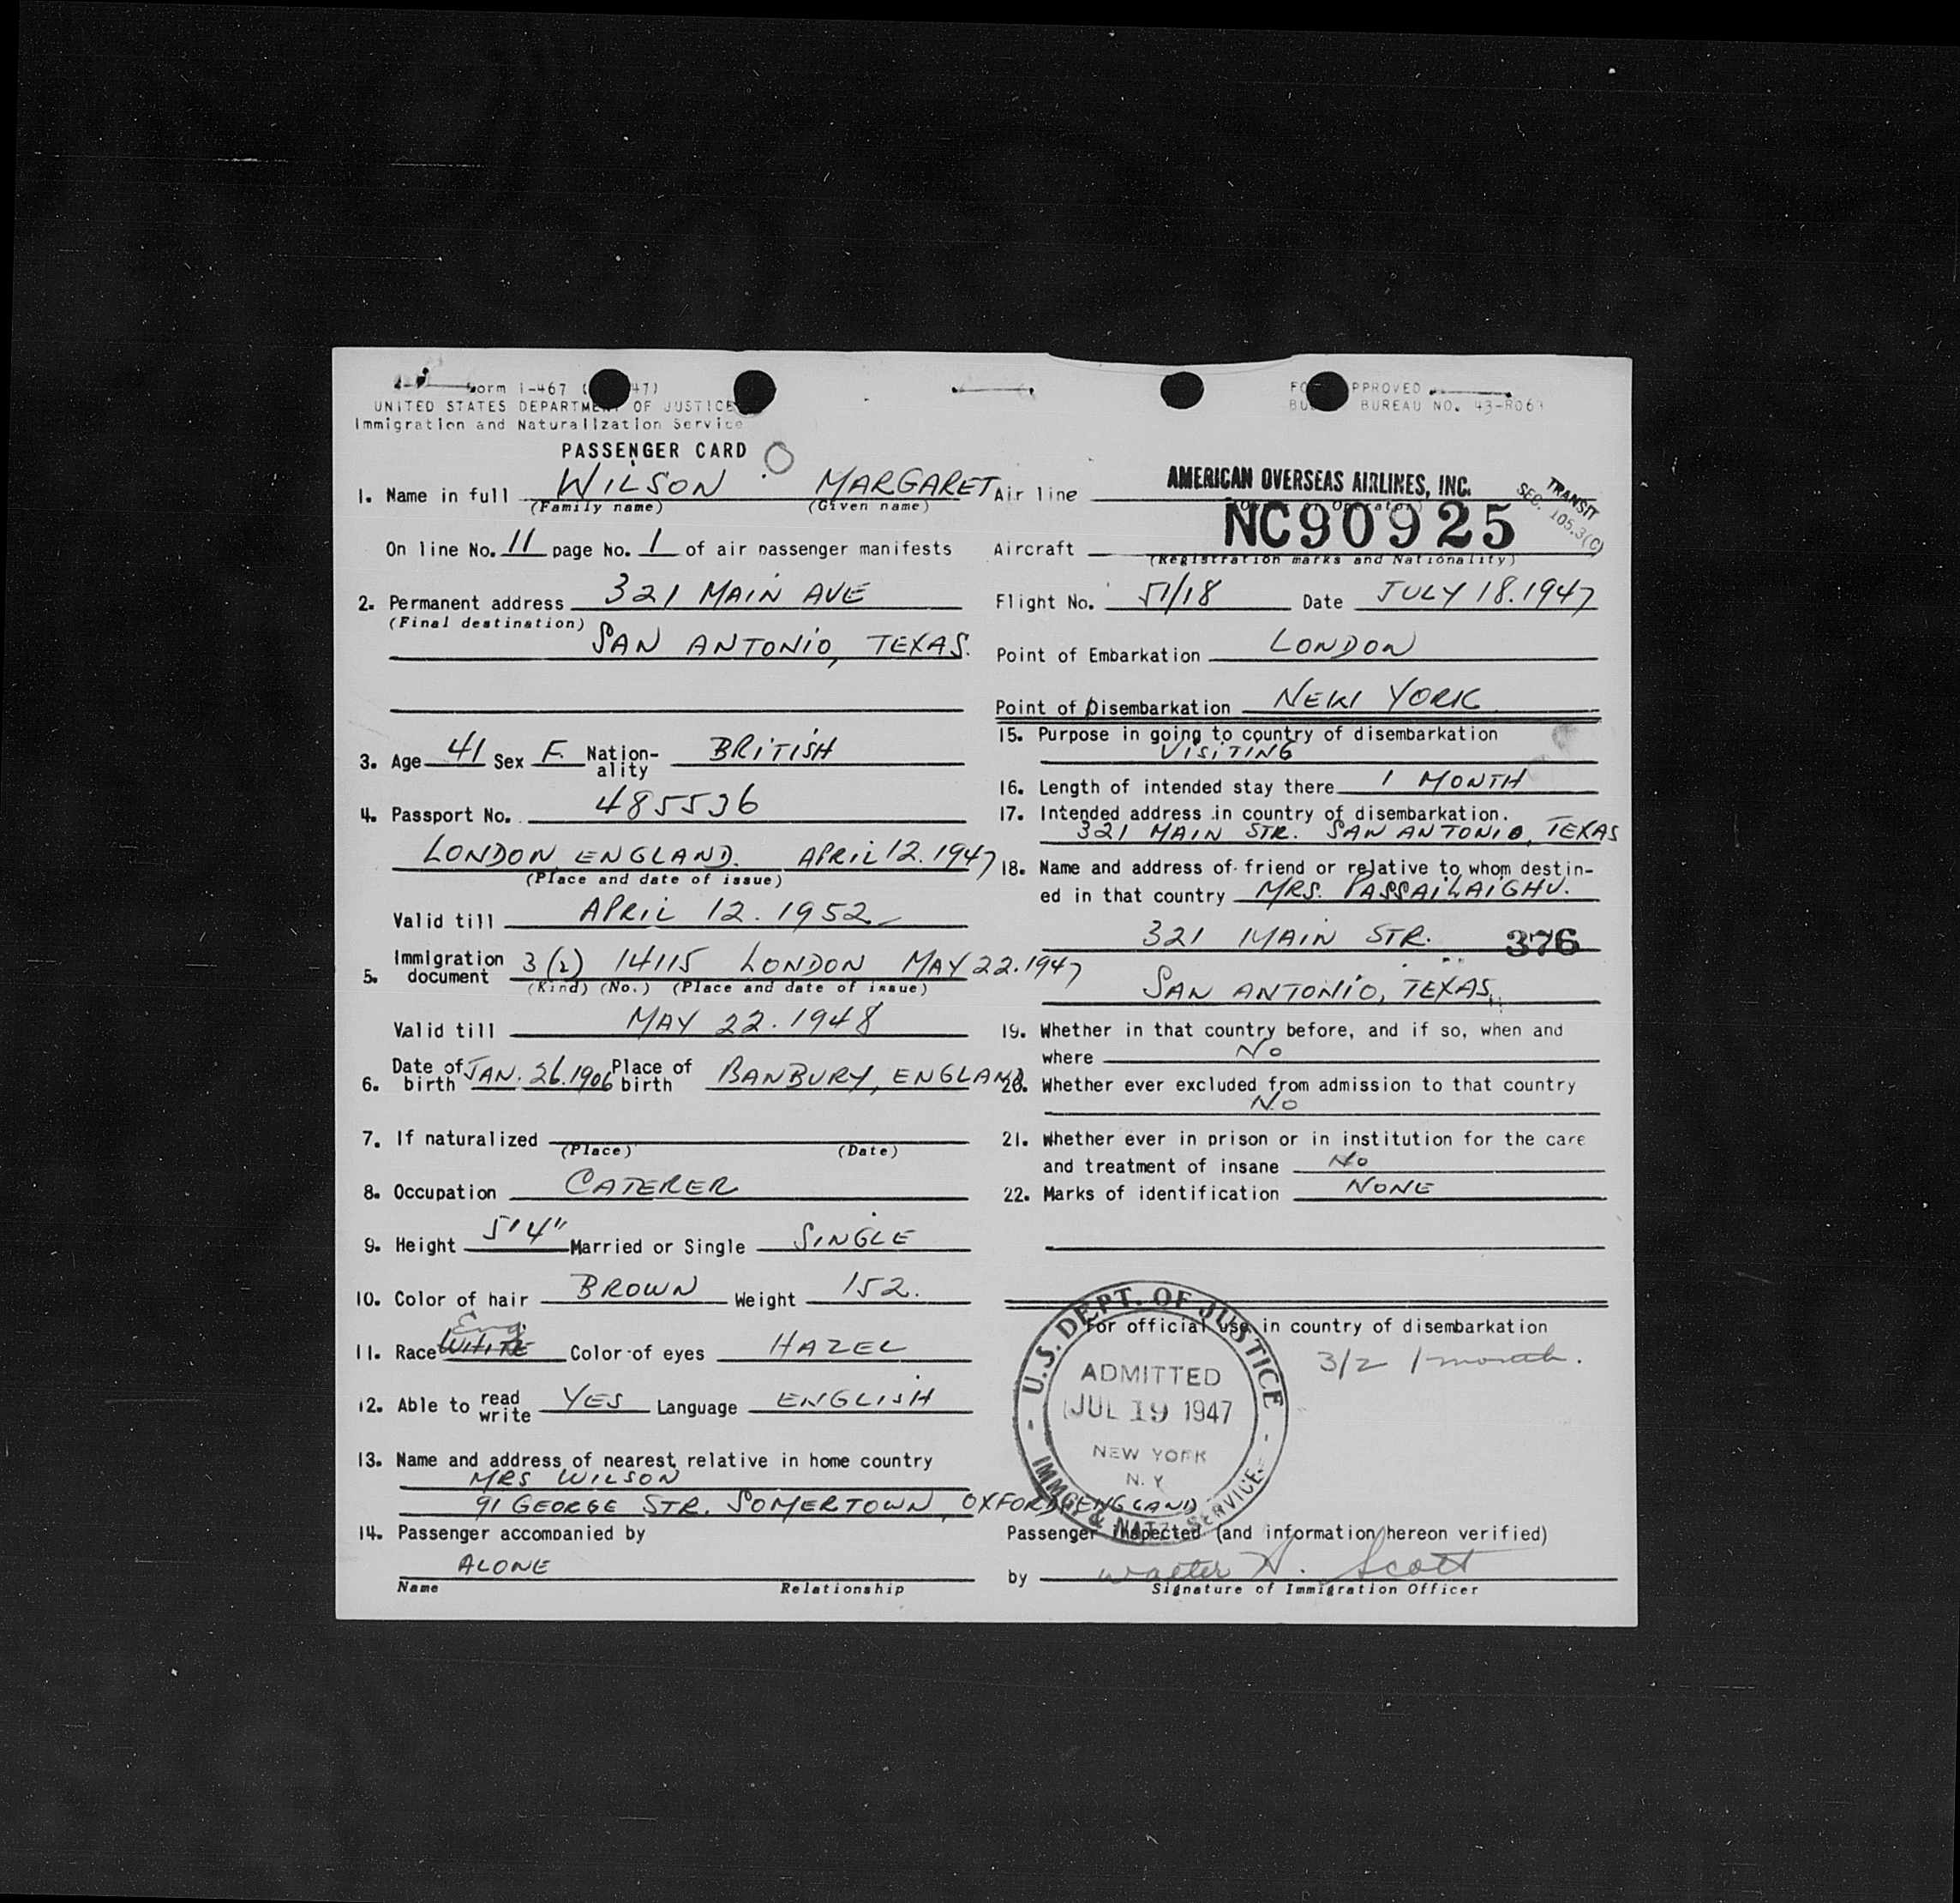 Form I-467 ( 47)
UNITED STATES DEPARTMENT OF JUSTICE
Immigration and Naturalization Service
PASSENGER CARD
APPROVED
BUREAU NO. 43-R063
1. Name in full WILSON MARGARET
(Family name) (Given name)
On line No. 11 page No. 1 of air passenger manifests
2. Permanent address 321 MAIN AVE
(Final destination) SAN ANTONIO, TEXAS.
3. Age 41 Sex F. Nation-ality BRITISH
4. Passport No. 485536
LONDON ENGLAND. APRIL 12. 1947
(Place and date of issue)
Valid till APRIL 12. 1952
5. Immigration document 3(2) 14115 LONDON MAY 22. 1947
(Kind) (No.) (Place and date of issue)
Valid till MAY 22. 1948
6. Date of birth JAN. 26. 1906 Place of birth BANBURY, ENGLAND
7. If naturalized
(Place) (Date)
8. Occupation CATERER
9. Height 5'4" Married or Single SINGLE
10. Color of hair BROWN Weight 152.
Eng.
11. Race WHITE Color of eyes HAZEL
12. Able to read write YES Language ENGLISH
13. Name and address of nearest relative in home country
MRS WILSON
91 GEORGE STR. SOMERTOWN, OXFORD, ENGLAND
14. Passenger accompanied by
ALONE
Name Relationship
Air line AMERICAN OVERSEAS AIRLINES, INC.
TRANSIT
SEC. 105.3(C)
Aircraft NC90925
(Registration marks and Nationality)
Flight No. 51/18 Date JULY 18. 1947
Point of Embarkation LONDON
Point of Disembarkation NEW YORK
15. Purpose in going to country of disembarkation
VISITING
16. Length of intended stay there 1 MONTH
17. Intended address in country of disembarkation.
321 MAIN STR. SAN ANTONIO, TEXAS
18. Name and address of friend or relative to whom destin-
ed in that country MRS. PASSAILAIGHU.
321 MAIN STR. 376
SAN ANTONIO, TEXAS.
19. Whether in that country before, and if so, when and
where NO
20. Whether ever excluded from admission to that country
NO
21. Whether ever in prison or in institution for the care
and treatment of insane NO
22. Marks of identification NONE
For official use in country of disembarkation
3/2 1 month.
U.S. DEPT. OF JUSTICE
ADMITTED
JUL 19 1947
NEW YORK
N.Y
IMMG. & NATZ. SERVICE
Passenger inspected (and information hereon verified)
by Walter A. Scott
Signature of Immigration Officer